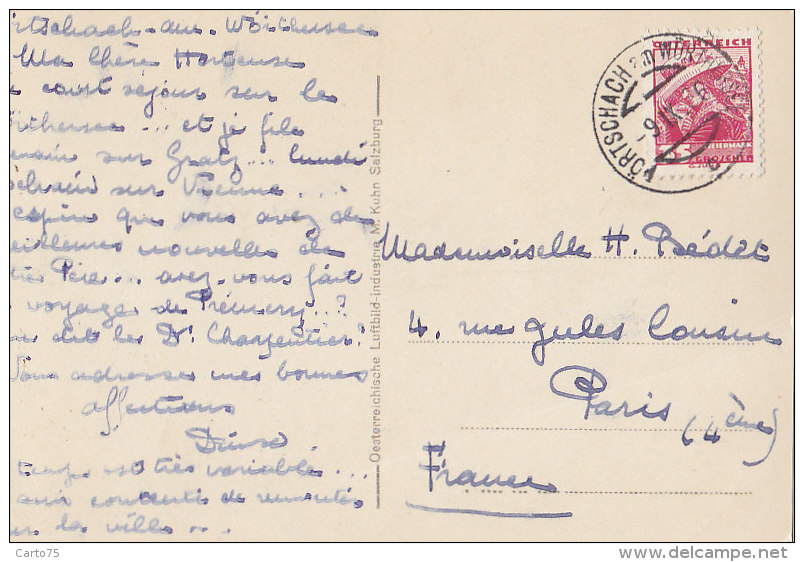 rtschach-am-Wörthersee
Ma chère Hortense
court séjour sur le
rthersee... et je file
main sur Gratz... lundi
sur Vienne....
espère que vous avez de
eilleures nouvelles de
tre Père... avez-vous fait
voyage de Prémery..?
dit le Dr Charpentier?
Vous adresse mes bonnes
affections
Denise
temps est très variable...
contents de
la ville...
Oesterreichische Luftbild-industrie M. Kuhn Salzburg
ÖSTERREICH
35
GROSCHEN
STEIERMARK
PÖRTSCHACH am WÖRTHERSEE
9.IX.36
Mademoiselle H. Bédet
4, rue Jules Cousin
Paris (4ème)
France
Carto75
delcampe.net